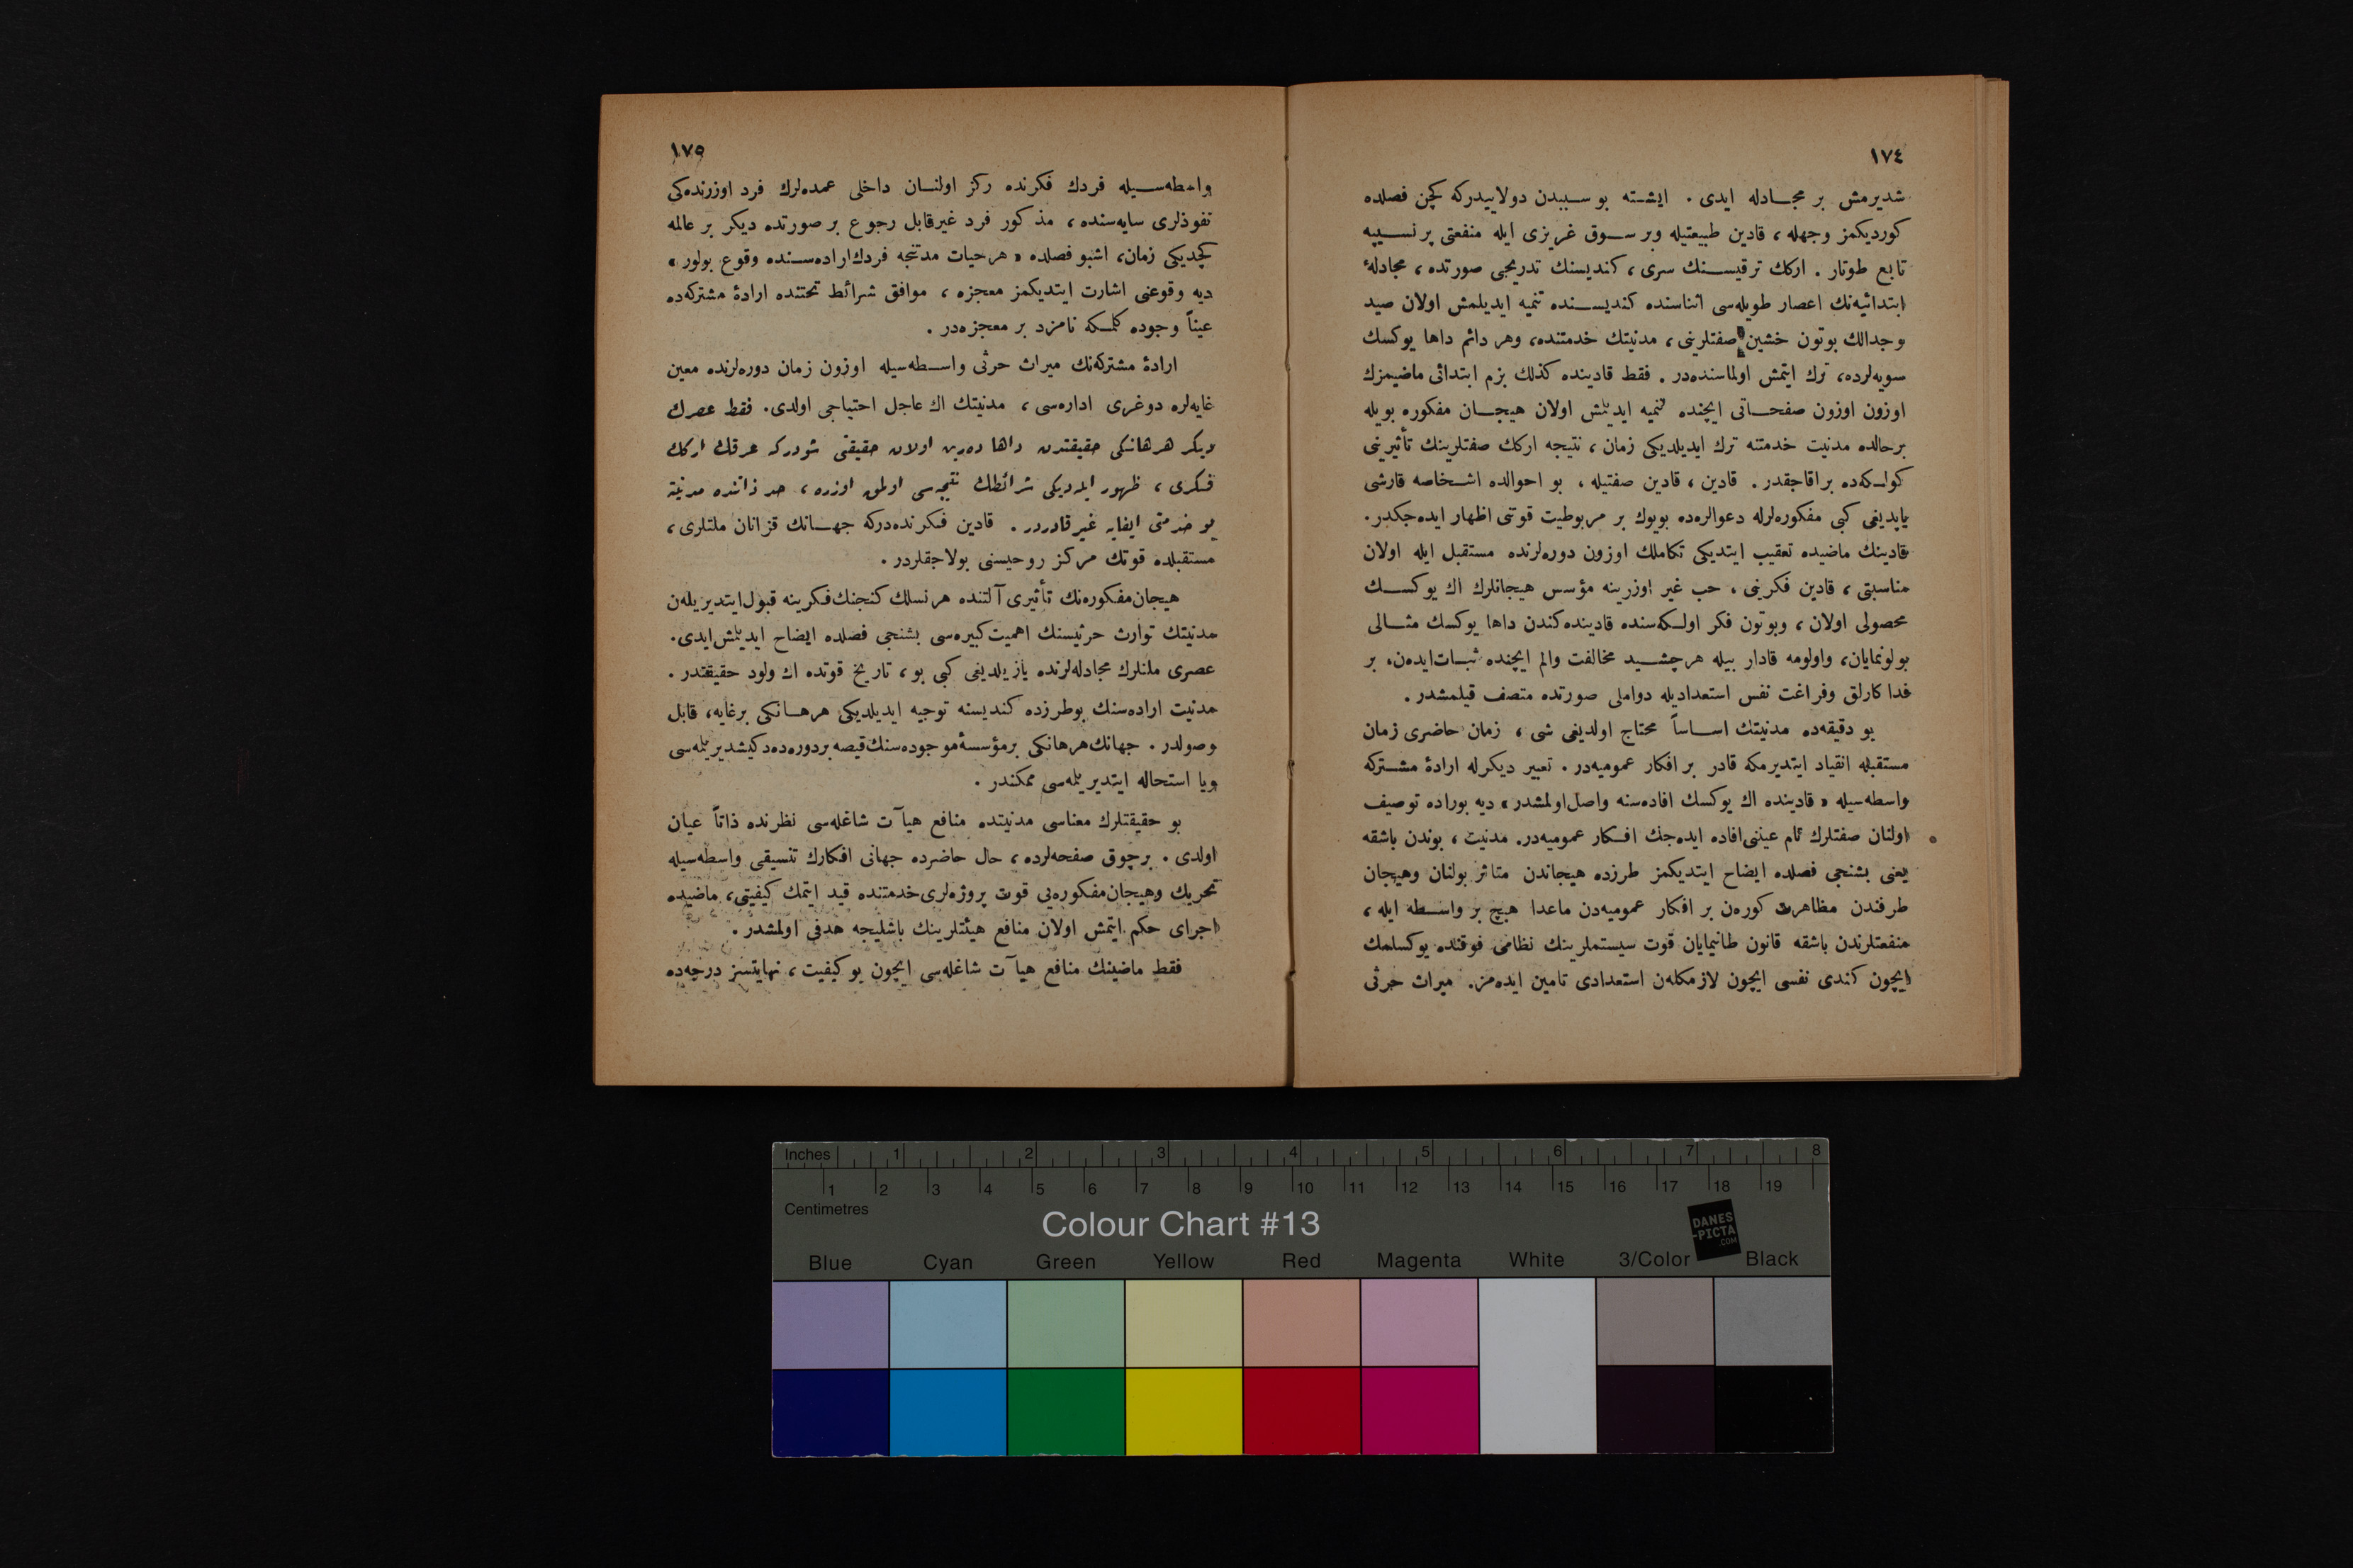 ١٧٤
شديرمش بر مجادله ايدى . ايشته بو سببدن دولاييدركه كچن فصلده
كورديكمز وجهله ، قادين طبيعتيله وبر سوق غريزى ايله منفعتى پرنسيپه
تابع طوتار . اركك ترقيسنك سرى ، كنديسنك تدريجى صورتده ، مجادلهٔ
ابتدائيه‌نك اعصار طويله‌سى اثناسنده كنديسنده تنميه ايديلمش اولان صيد
وجدالك بوتون خشين صفتلرينى ، مدنيتك خدمتنده، وهر دائم داها يوكسك
سويه‌لرده، ترك ايتمش اولماسنده‌در . فقط قادينده كذلك بزم ابتدائى ماضيمزك
اوزون اوزون صفحاتى ايچنده تنميه ايدلمش اولان هيجان مفكوره بويله
برحالده مدنيت خدمتنه ترك ايديلديكى زمان ، نتيجه اركك صفتلرينك تأثيرينى
كولكه‌ده براقاجقدر . قادين ، قادين صفتيله ، بو احوالده اشخاصه قارشى
ياپديغى كبى مفكوره‌لرله دعوالرده بويوك بر مربوطيت قوتى اظهار ايده‌جكدر.
قادينك ماضيده تعقيب ايتديكى تكاملك اوزون دوره‌لرنده مستقبل ايله اولان
مناسبتى ، قادين فكرينى ، حب غير اوزرينه مؤسس هيجانلرك اك يوكسك
محصولى اولان ، وبوتون فكر اولكه‌سنده قادينده كندن داها يوكسك مثالى
بولونمايان، واولومه قادار بيله هرچشيد مخالفت والم ايچنده ثبات‌ايده‌ن، بر
فدا كارلق وفراغت نفس استعداديله دواملى صورتده متصف قيلمشدر .
بو دقيقه‌ده مدنيتك اساساً محتاج اولديغى شى ، زمان حاضرى زمان
مستقبله انقياد ايتديرمكه قادر بر افكار عموميه‌در . تعبير ديكرله ارادهٔ مشتركه
واسطه‌سيله « قادينده اك يوكسك افاده‌سنه واصل‌اولمشدر » ديه بوراده توصيف
اولنان صفتلرك تمام عيننى‌افاده ايده‌جك افكار عموميه‌در. مدنيت ، بوندن باشقه
يعنى بشنجى فصلده ايضاح ايتديكمز طرزده هيجاندن متاثر بولنان وهيجان
طرفندن مظاهرت كوره‌ن بر افكار عموميه‌دن ماعدا هيچ بر واسطه ايله ،
منفعتلرندن باشقه قانون طانيمايان قوت سيستملرينك نظامى فوقنده يوكسلمك
ايچون كندى نفسى ايچون لازمكله‌ن استعدادى تامين ايده‌مز. ميراث حرثى
١٧٥
واسطه‌سيله فردك فكرنده ركز اولنان داخلى عمده‌لرك فرد اوزرنده‌كى
نفوذلرى سايه‌سنده ، مذكور فرد غيرقابل رجوع بر صورتده ديكر بر عالمه
كچديكى زمان، اشبو فصلده « هرحيات مدنتجه فردك‌اراده‌سنده وقوع بولور »
ديه وقوعنى اشارت ايتديكمز معجزه ، موافق شرائط تحتنده ارادهٔ مشتركه‌ده
عيناً وجوده كلمكه نامزد بر معجزه‌در .
ارادهٔ مشتركه‌نك ميراث حرثى واسطه‌سيله اوزون زمان دوره‌لرنده معين
غايه‌لره دوغرى اداره‌سى ، مدنيتك اك عاجل احتياجى اولدى. فقط عصرك
ديكر هرهانكى حقيقتدن داها ده‌رين اولان حقيقتى شودركه عرقك اركك
فكرى ، ظهور ايله‌ديكى شرائطك نتيجه‌سى اولمق اوزره ، حد ذاتنده مدنيته
بو خدمتى ايفايه غيرقادردر . قادين فكرنده‌دركه جهانك قزانان ملتلرى ،
مستقبلده قوتك مركز روحيسنى بولاجقلردر .
هيجان‌مفكوره‌نك تأثيرى آلتنده هرنسلك كنجنك‌فكرينه قبول‌ايتديريله‌ن
مدنيتك توارث حرثيسنك اهميت‌كبيره‌سى بشنجى فصلده ايضاح ايدلمش‌ايدى.
عصرى ملتلرك مجادله‌لرنده يازيلديغى كبى بو ، تاريخ قوتده اك ولود حقيقتدر .
مدنيت اراده‌سنك بوطرزده كنديسنه توجيه ايديلديكى هرهانكى برغايه، قابل
وصولدر . جهانك‌هرهانكى برمؤسسهٔ‌موجوده‌سنك‌قيصه بردوره‌ده‌دكيشديريلمه‌سى
ويا استحاله ايتديريلمه‌سى ممكندر .
بو حقيقتلرك معناسى مدنيتده منافع هيآت شاغله‌سى نظرنده ذاتاً عيان
اولدى . برچوق صفحه‌لرده ، حال حاضرده جهانى افكارك تنسيقى واسطه‌سيله
تحريك وهيجان‌مفكوره‌يى قوت پروژه‌لرى‌خدمتنده قيد ايتمك كيفيتى، ماضيده
اجراى حكم ايتمش اولان منافع هيئتلرينك باشليجه هدفى اولمشدر .
فقط ماضينك منافع هيآت شاغله‌سى ايچون بو كيفيت ، نهايتسز درجه‌ده
Inches 1 2 3 4 5 6 7 8
1 2 3 4 5 6 7 8 9 10 11 12 13 14 15 16 17 18 19
Centimetres
Colour Chart #13
DANES
-PICTA
.COM
Blue Cyan Green Yellow Red Magenta White 3/Color Black